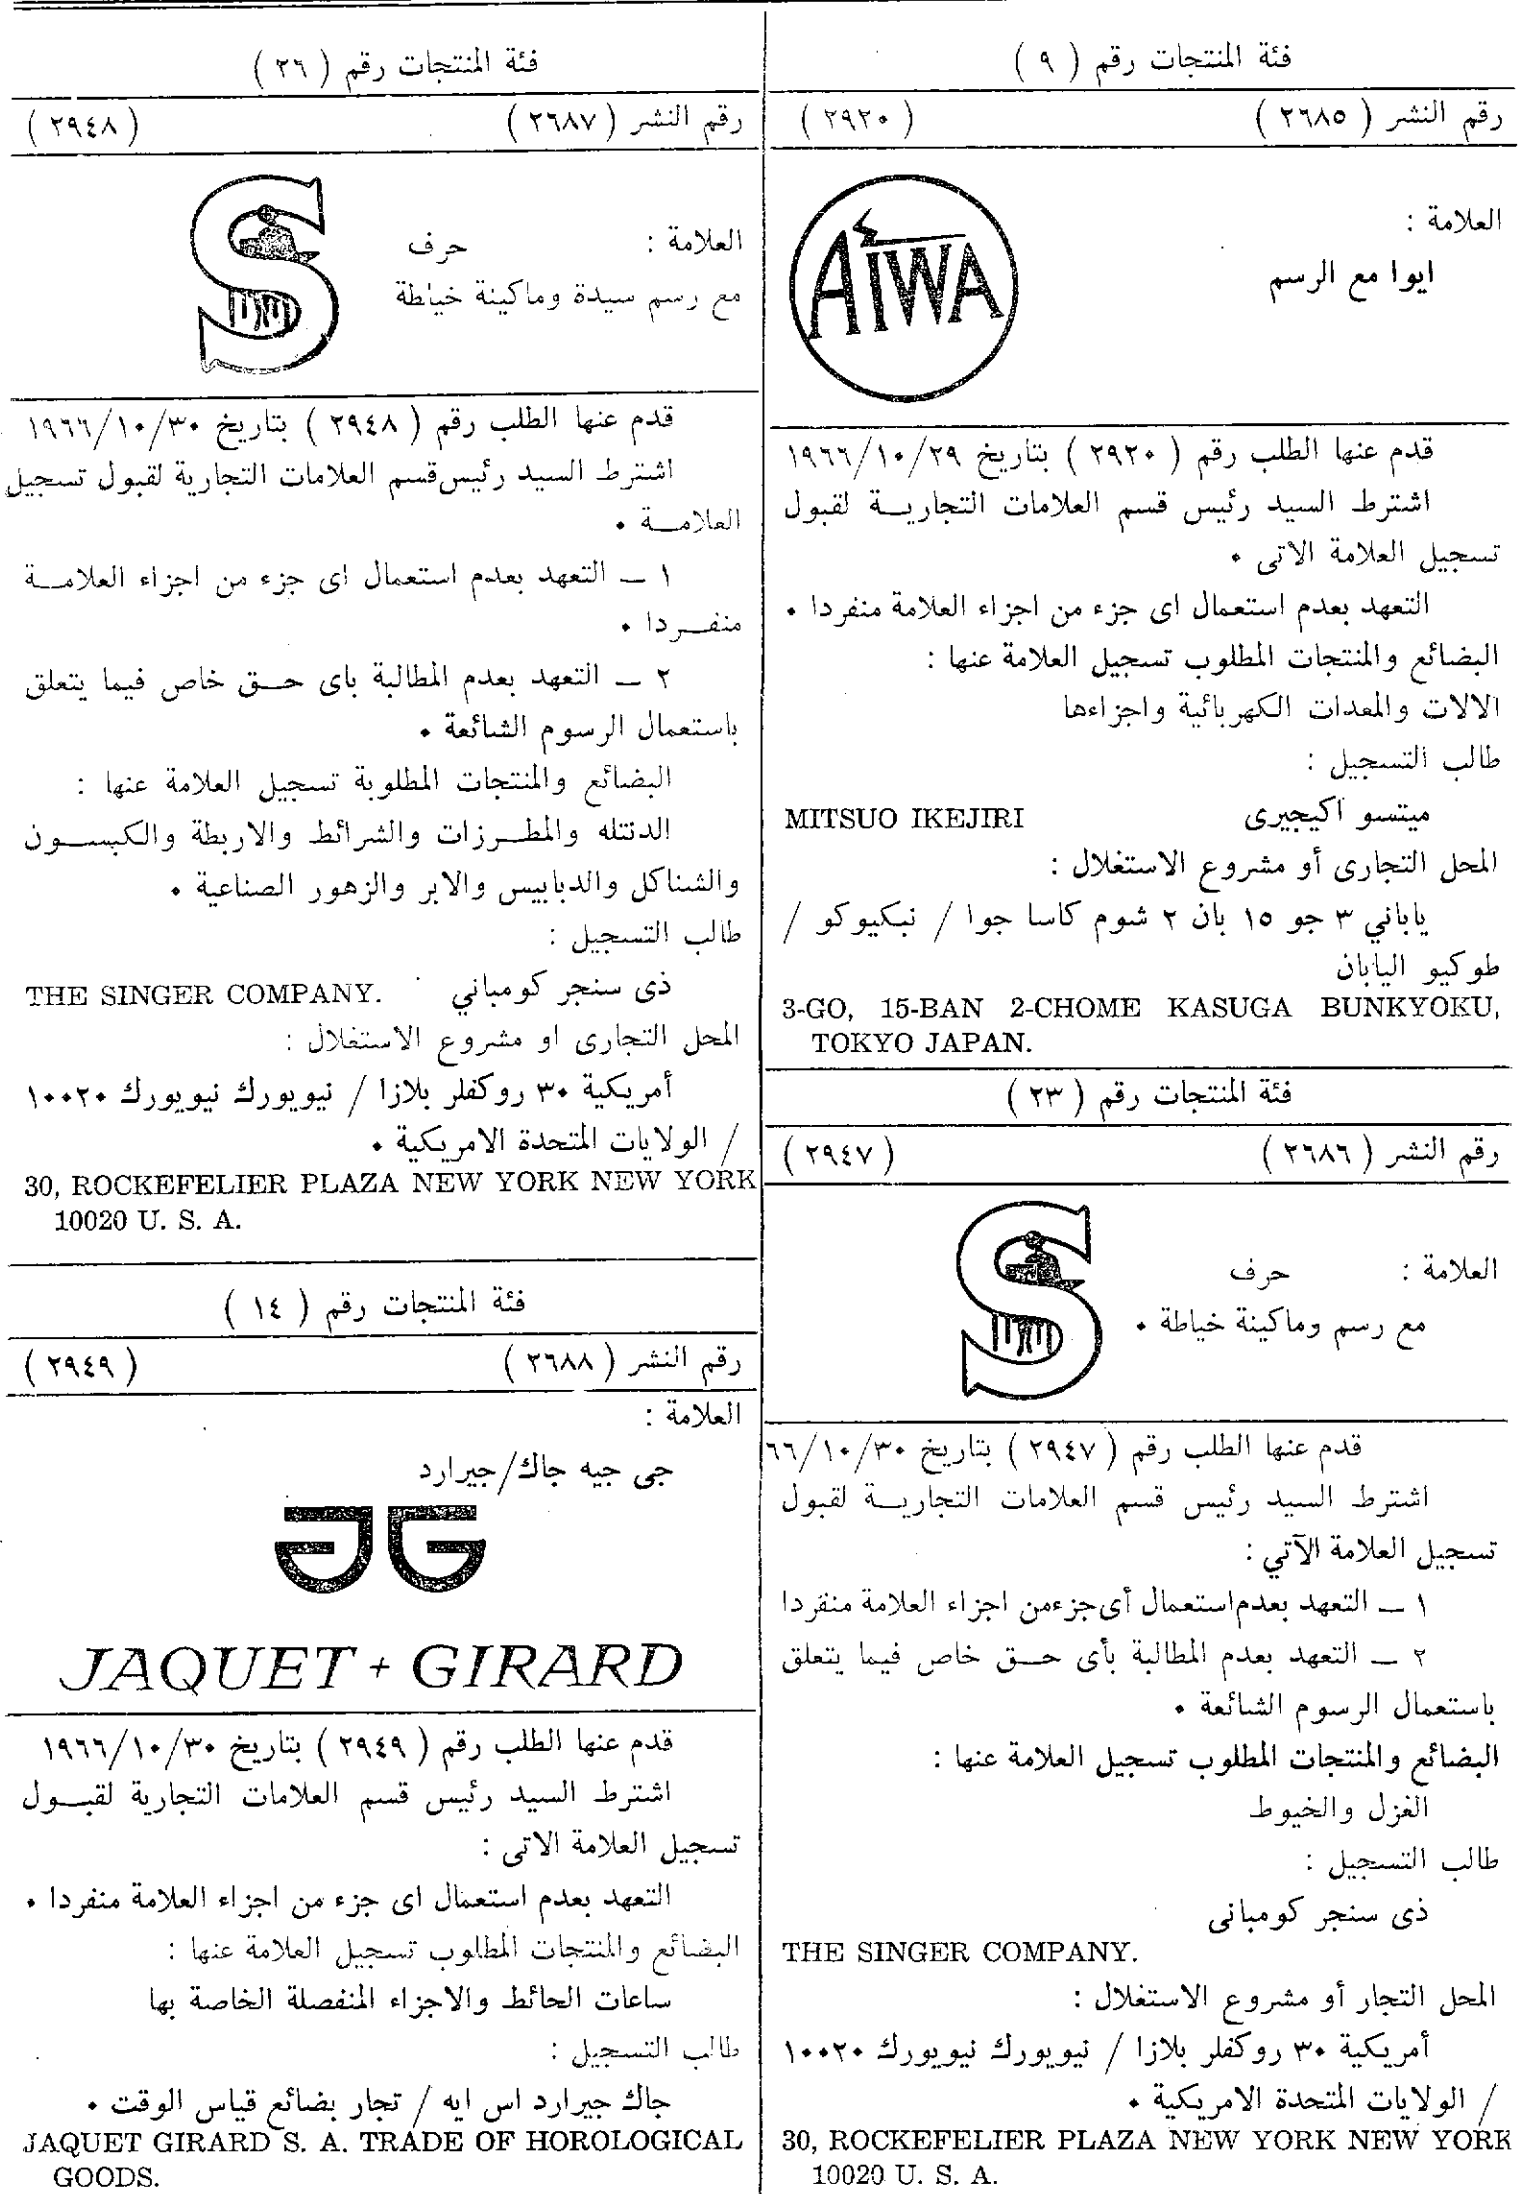 فئة المنتجات رقم ( ٩ )
رقم النشر ( ٢٦٨٥ ) ( ٢٩٢٠ )
العلامة :
ايوا مع الرسم
AIWA
قدم عنها الطلب رقم ( ٢٩٢٠ ) بتاريخ ١٩٦٦/١٠/٢٩
اشترط السيد رئيس قسم العلامات التجاريـة لقبول
تسجيل العلامة الاتى ٠
التعهد بعدم استعمال اى جزء من اجزاء العلامة منفردا ٠
البضائع والمنتجات المطلوب تسجيل العلامة عنها :
الالات والمعدات الكهربائية واجزاءها
طالب التسجيل :
ميتسو اكيجيرى MITSUO IKEJIRI
المحل التجارى أو مشروع الاستغلال :
ياباني ٣ جو ١٥ بان ٢ شوم كاسا جوا / نبكيوكو /
طوكيو اليابان
3-GO, 15-BAN 2-CHOME KASUGA BUNKYOKU,
TOKYO JAPAN.
فئة المنتجات رقم ( ٢٣ )
رقم النشر ( ٢٦٨٦ ) ( ٢٩٤٧ )
العلامة : حرف S
مع رسم وماكينة خياطة ٠
قدم عنها الطلب رقم ( ٢٩٤٧ ) بتاريخ ٦٦/١٠/٣٠
اشترط السيد رئيس قسم العلامات التجاريـة لقبول
تسجيل العلامة الآتي :
١ ــ التعهد بعدم استعمال أى جزء من اجزاء العلامة منفردا
٢ ــ التعهد بعدم المطالبة بأى حـق خاص فيما يتعلق
باستعمال الرسوم الشائعة ٠
البضائع والمنتجات المطلوب تسجيل العلامة عنها :
الغزل والخيوط
طالب التسجيل :
ذى سنجر كومبانى
THE SINGER COMPANY.
المحل التجار أو مشروع الاستغلال :
أمريكية ٣٠ روكفلر بلازا / نيويورك نيويورك ١٠٠٢٠
/ الولايات المتحدة الامريكية ٠
30, ROCKEFELIER PLAZA NEW YORK NEW YORK
10020 U. S. A.
فئة المنتجات رقم ( ٢٦ )
رقم النشر ( ٢٦٨٧ ) ( ٢٩٤٨ )
العلامة : حرف S
مع رسم سيدة وماكينة خياطة
قدم عنها الطلب رقم ( ٢٩٤٨ ) بتاريخ ١٩٦٦/١٠/٣٠
اشترط السيد رئيس قسم العلامات التجارية لقبول تسجيل
العلامـة ٠
١ ــ التعهد بعدم استعمال اى جزء من اجزاء العلامـة
منفـردا ٠
٢ ــ التعهد بعدم المطالبة باى حـق خاص فيما يتعلق
باستعمال الرسوم الشائعة ٠
البضائع والمنتجات المطلوبة تسجيل العلامة عنها :
الدنتله والمطـرزات والشرائط والاربطة والكبسـون
والشناكل والدبابيس والابر والزهور الصناعية ٠
طالب التسجيل :
ذى سنجر كومباني THE SINGER COMPANY.
المحل التجارى او مشروع الاستغلال :
أمريكية ٣٠ روكفلر بلازا / نيويورك نيويورك ١٠٠٢٠
/ الولايات المتحدة الامريكية ٠
30, ROCKEFELIER PLAZA NEW YORK NEW YORK
10020 U. S. A.
فئة المنتجات رقم ( ١٤ )
رقم النشر ( ٢٦٨٨ ) ( ٢٩٤٩ )
العلامة :
جى جيه جاك/جيرارد
JG
JAQUET + GIRARD
قدم عنها الطلب رقم ( ٢٩٤٩ ) بتاريخ ١٩٦٦/١٠/٣٠
اشترط السيد رئيس قسم العلامات التجارية لقبـول
تسجيل العلامة الاتى :
التعهد بعدم استعمال اى جزء من اجزاء العلامة منفردا ٠
البضائع والمنتجات المطلوب تسجيل العلامة عنها :
ساعات الحائط والاجزاء المنفصلة الخاصة بها
طالب التسجيل :
جاك جيرارد اس ايه / تجار بضائع قياس الوقت ٠
JAQUET GIRARD S. A. TRADE OF HOROLOGICAL
GOODS.